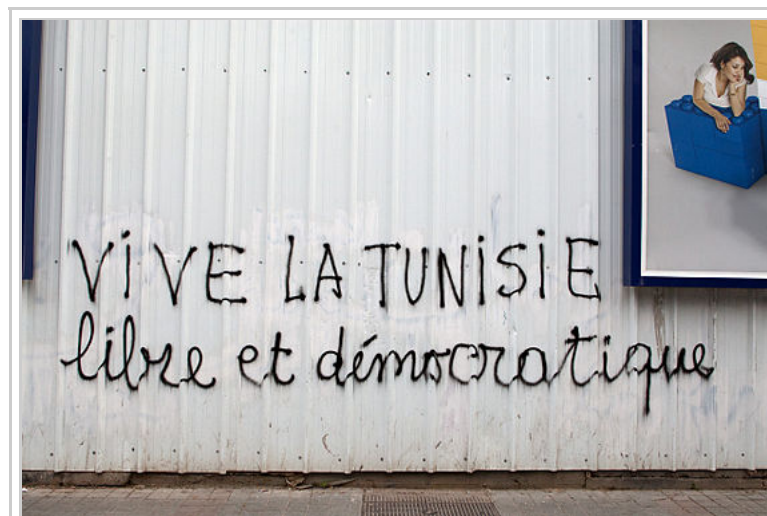 ViVE LA TUNiSiE
libre et démocratique